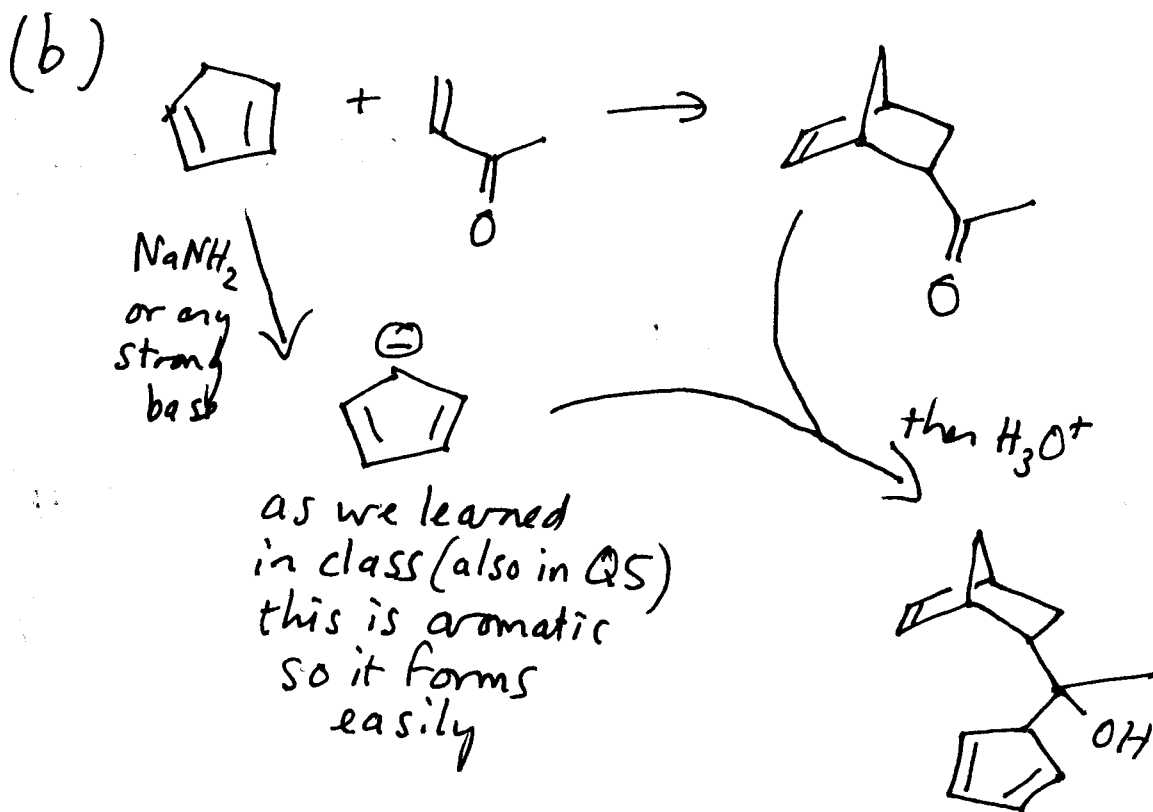 (b)
+
O
O
NaNH2
or any
strong
base
⊖
then H3O+
as we learned
in class (also in Q5)
this is aromatic
so it forms
easily
OH